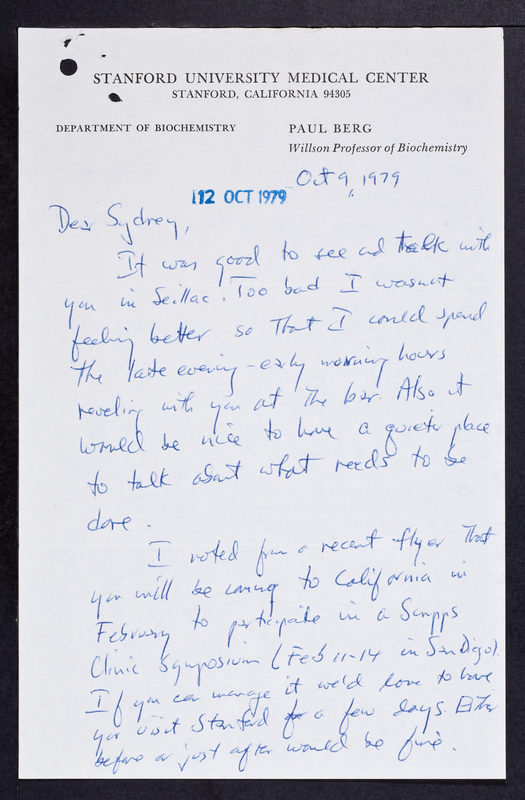 STANFORD UNIVERSITY MEDICAL CENTER
STANFORD, CALIFORNIA 94305
DEPARTMENT OF BIOCHEMISTRY
PAUL BERG
Willson Professor of Biochemistry
Oct 9, 1979
12 OCT 1979
Dear Sydney,
It was good to see and talk with
you in Seillac. Too bad I wasn't
feeling better so that I could spend
the late evening - early morning hours
reveling with you at the bar. Also it
would be nice to have a quieter place
to talk about what needs to be
done.
I noted from a recent flyer that
you will be coming to California in
February to participate in a Scripps
Clinic Symposium (Feb 11-14 in San Diego).
If you can manage it we'd love to have
you visit Stanford for a few days. Either
before or just after would be fine.